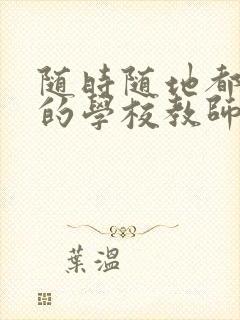 随時随地都
的學校教師
葉溫